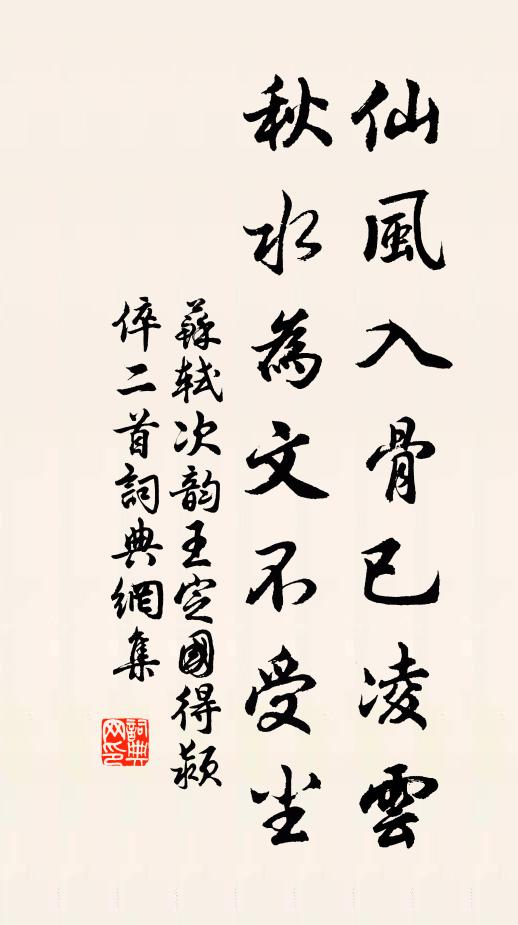 仙風入骨已凌雲
秋水為文不受尘
蘇軾次韵王定國得潁
倅二首詞典網集
詞典
网印